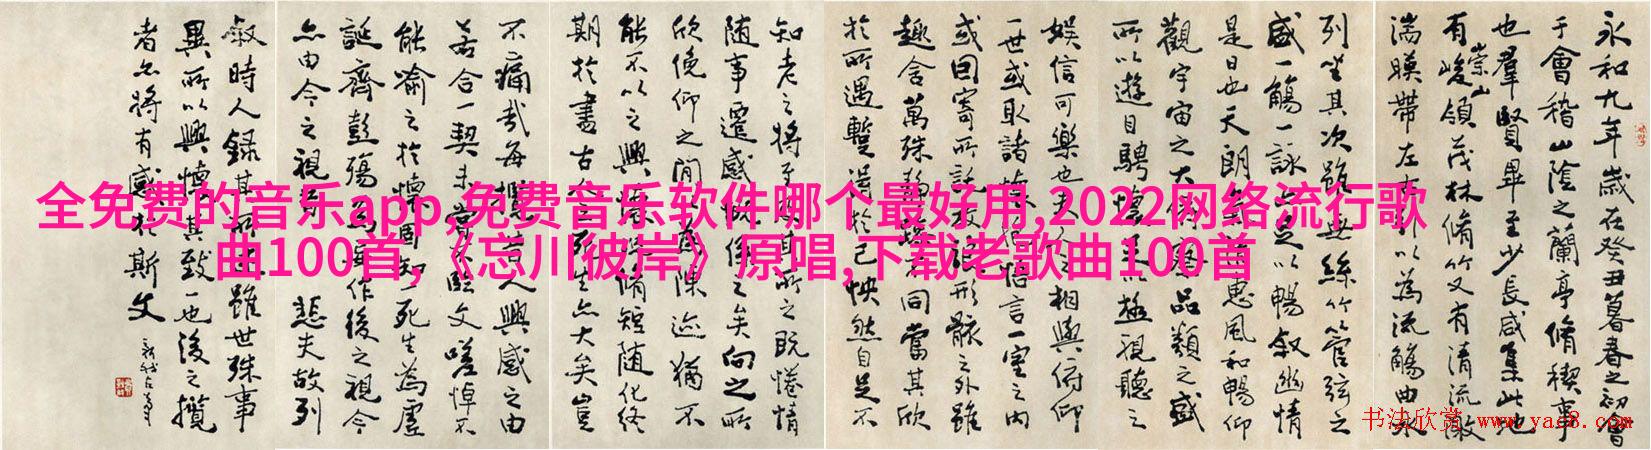 全免费的音乐app,免费音乐软件哪个最好用,2022网络流行歌
曲100首,《忘川彼岸》原唱,下载老歌曲100首
永和九年歲在癸丑暮春之初會
于會稽山陰之蘭亭脩禊事
也羣賢畢至少長咸集此地
有崇山峻領茂林脩竹又有清流激
湍暎帶左右引以為流觴曲水
列坐其次雖無絲竹管弦之
盛一觴一詠亦足以暢敘幽情
是日也天朗氣清惠風和暢仰
觀宇宙之大俯察品類之盛
所以遊目騁懷足以極視聽之
娛信可樂也夫人之相與俯仰
一世或取諸懷抱悟言一室之內
或因寄所託放浪形骸之外雖
趣舍萬殊靜躁不同當其欣
於所遇暫得於己怏然自足不
知老之將至及其所之既惓情
隨事遷感慨係之矣向之所
欣俛仰之間以為陳迹猶不
能不以之興懷況脩短隨化終
期於盡古人云死生亦大矣豈
不痛哉每攬昔人興感之由
若合一契未嘗不臨文嗟悼不
能喻之於懷固知死生為虛
誕齊彭殤為妄作後之視今
亦由今之視昔悲夫故列
敘時人錄其所述雖世殊事
異所以興懷其致一也後之攬
者亦將有感於斯文
书法欣赏 www.yac8.com